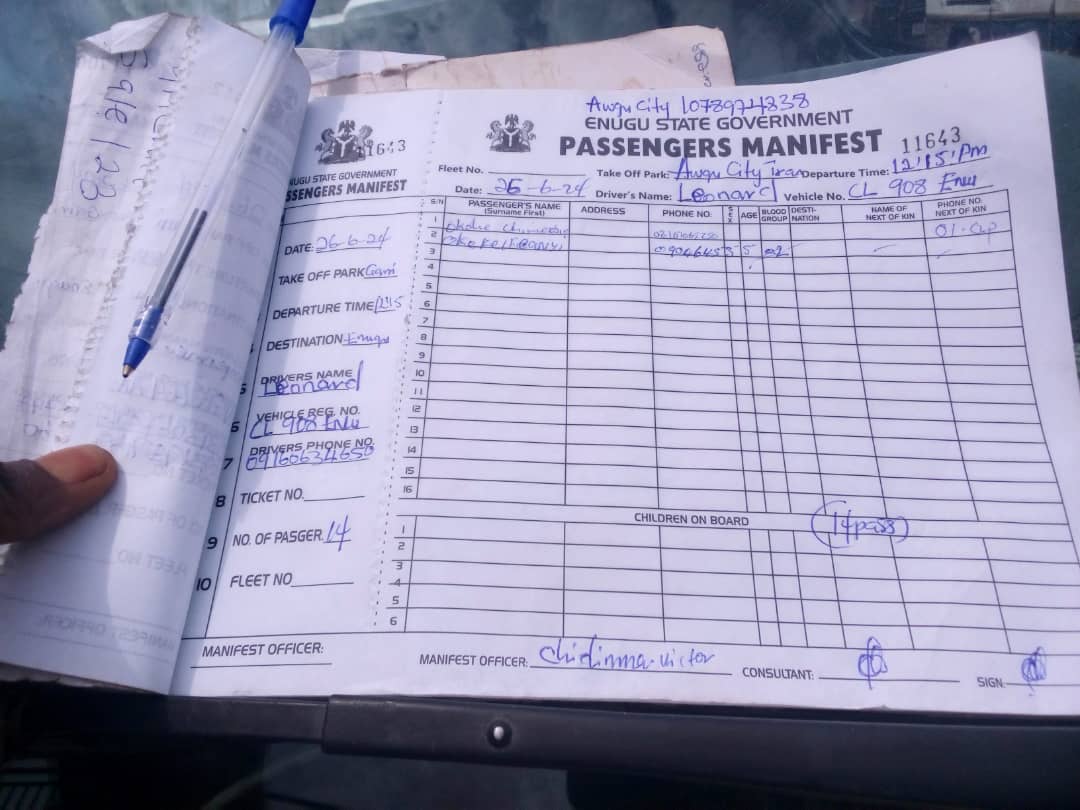 ENUGU STATE GOVERNMENT
PASSENGERS MANIFEST
DATE: 26-6-24
TAKE OFF PARK
DEPARTURE TIME 12:15
DESTINATION Enugu
5 DRIVERS NAME
Leonard
6 VEHICLE REG. NO.
CL 908 Enu
7 DRIVERS PHONE NO.
09160634650
8 TICKET NO.
9 NO. OF PASGER. 14
10 FLEET NO
MANIFEST OFFICER:
Awgu City
ENUGU STATE GOVERNMENT
PASSENGERS MANIFEST 11643
Fleet No. Take Off Park: Awgu City Tran Departure Time: 12:15 Pm
Date: 26-6-24 Driver's Name: Leonard Vehicle No. CL 908 Enu
S/N PASSENGER'S NAME (Surname First) ADDRESS PHONE NO. SEX AGE BLOOD GROUP DESTI-NATION NAME OF NEXT OF KIN PHONE NO. NEXT OF KIN
1
2
3
4
5
6
7
8
9
10
11
12
13
14
15
16
CHILDREN ON BOARD (14pass)
1
2
3
4
5
6
MANIFEST OFFICER: Chidinma-Victor CONSULTANT: SIGN.